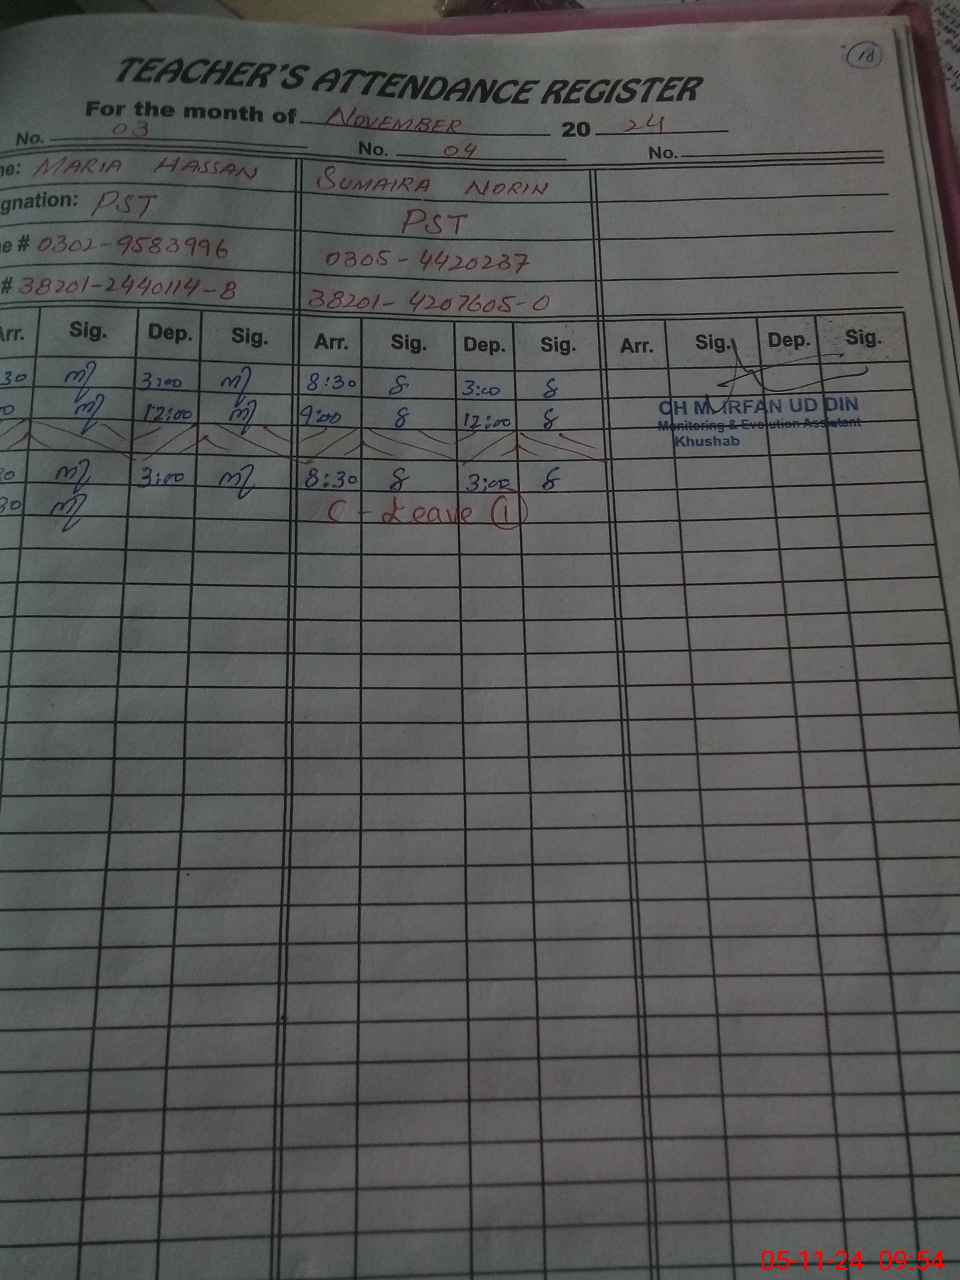 18
TEACHER'S ATTENDANCE REGISTER
For the month of NOVEMBER 20 24
No. 03 No. 04 No.
me: MARIA HASSAN SUMAIRA NORIN
gnation: PST PST
e # 0302-9583996 0305-4420237
# 38201-2440114-8 38201-4207605-0
Arr. Sig. Dep. Sig. Arr. Sig. Dep. Sig. Arr. Sig. Dep. Sig.
30 3:00 8:30 3:00
00 12:00 9:00 12:00
CH M. IRFAN UD DIN
Monitoring & Evolution Assistant
Khushab
30 3:00 8:30 3:00
30 C - Leave 1
05-11-24 09:54